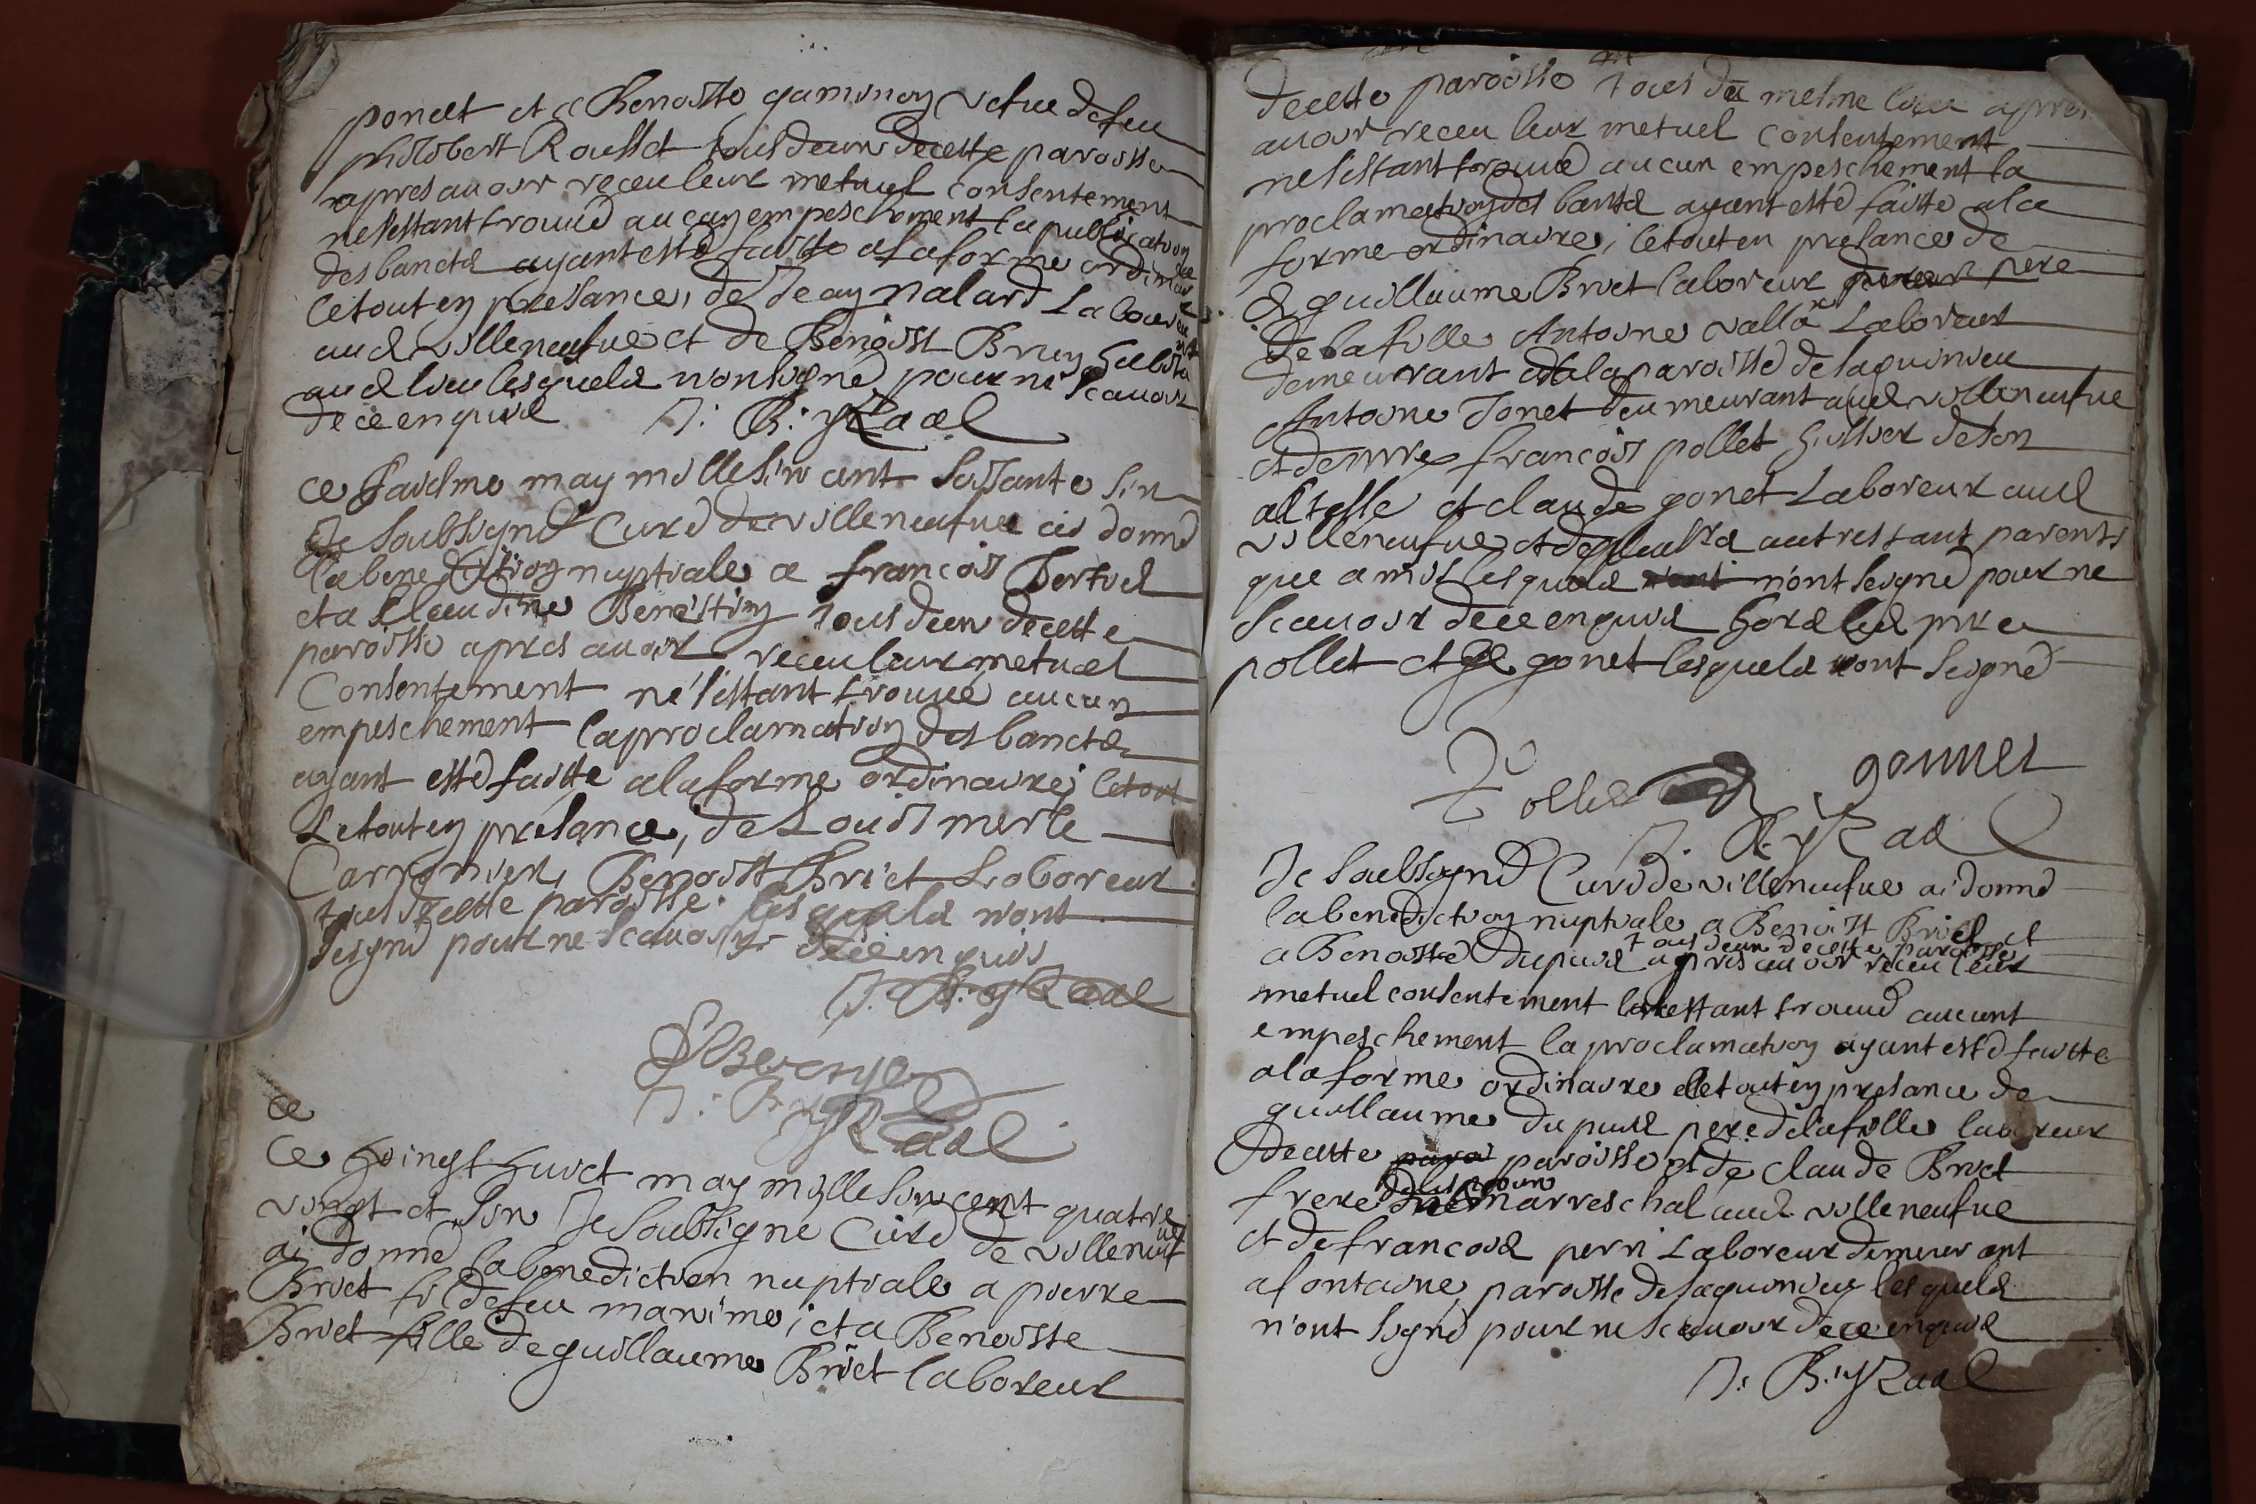 poncet et a Benoiste gaminon vefue de feu
philibert Rousset tous deux de ceste paroisse
apres auoir receu leur metuel consentement
ne s'estant trouué aucun empeschement la publication
des bancts ayant esté faitte a la forme ordinaire
le tout en presance, de Jean nalard Laboureur
aud villeneufue et de Benoist Brun
aud lieu lesquels n'ont signé pour ne scauoir
de ce enquis J: B: yRael
ce may mille six cent soissante six
Je soubsigné Curé de villeneufue ai donné
la benediction nuptiale a françois Bertuel
et a Claudine Benoistin tous deux de ceste
paroisse apres auoir receu leur metuel
Consentement ne s'estant trouué aucun
empeschement la proclamation des bancts
ayant esté faitte a la forme ordinaire; letout
Letout en presance, de Louis merle
Benoist Briet Laboreur
tous de ceste paroisse lesquels n'ont
seigné pour ne scauoir de ce enquis
J: B: yRael
J: B: yRael
ce
Ce vingt huict may mille six cent quatre
vingt et six Je soubsigne Curé de villeneufue
ai donné la benediction nuptiale a pierre
Briet fi de feu maxime; et a Benoiste
Briet fille de guillaume Briet laboreur
de ceste paroisse tous du mesme lieu apres
auoir receu leur metuel consentement
ne s'estant trouué aucun empeschement la
proclamation des bants ayant esté faitte a la
forme ordinaire; le tout en presance de
guillaume Briet laboreur pere
de la fille Antoine valla Laboreur
demeurant a la paroisse de saquinieu
Antoine Jonet demeurant aud villeneufue
et de françois pollet huissier de son
altesse et claude gonet Laboreur aud
villeneufue et de plusrs autres tant parents
que amis lesquels n'ont n'ont seigné pour ne
scauoir de ce enquis hors led
pollet et gonet lesquels ont seigné
Pollet gonnet
J: B: yRael
Je soubsigné Curé de villeneufue ai donné
la benediction nuptiale a Benoist Briet et
a Benoiste dupuis tous deux de ceste paroisse apres auoir receu leur
metuel consentement ne s'estant trouué aucunt
empeschement la proclamation ayant esté faitte
a la forme ordinaire le tout en presance de
guillaume du puis pere de la fille laboreur
de ceste paroi paroisse et de claude Briet
frere marreschal aud villeneufue
et de françois perri Laboreur demeurant
a fontaine, paroisse de saquinieu lesquels
n'ont signé pour ne scauoir de ce enquis
J: B: yRael